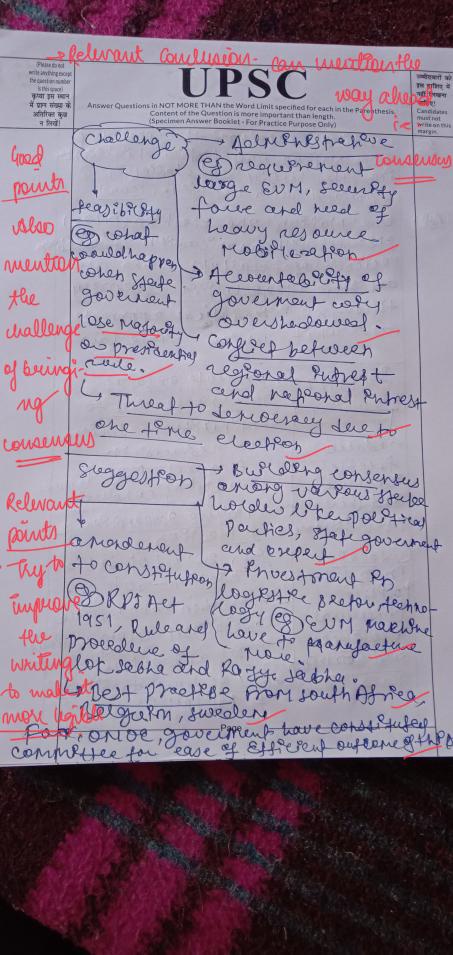 → Relevant Conclusion - can mention the
way ahead
i.e
consensus
(Please do not
write anything except
the question number
in this space)
कृपया इस स्थान
में प्रश्न संख्या के
अतिरिक्त कुछ
न लिखें।
UPSC
Answer Questions in NOT MORE THAN the Word Limit specified for each in the Parenthesis.
Content of the Question is more important than length.
(Specimen Answer Booklet - For Practice Purpose Only)
उम्मीदवारों को
इस हाशिए में
नहीं लिखना
चाहिए।
Candidates
must not
write on this
margin.
Challenge
→ Administrative
eg requirement
large EVM, security
force and need of
heavy resource
mobilization
→ Accountability of
government
overshadowed.
→ Conflict between
regional interest
and national intrest
feasibility
eg what
would happen
when state
government
lose majority
or presidential
rule.
→ Threat to democracy due to
one time election
Good
points
Also
mention
the
challenge
of bringi-
ng
consensus
Suggestion
→ Building consensus
among various stake
holder like political
parties, state government
and expert
→ Investment in
logistics before techno-
logy eg EVM machine
have to manufacture
more.
amendment
to constitution
eg RPI Act
1951, Rule and
procedure of
Lok sabha and Rajya sabha.
→ Best practise from South Africa,
Belgium, Sweden
For, ONOE, government have constituted
committee for ease of efficient outcome of the
Relevant
points
Try to
improve
the
writing
to make it
more legible